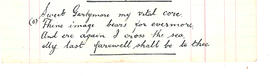 Sweet Garlymore my vital core
(6) Thine image bears for evermore,
And ere again I cross the sea
My last farewell shall be to thee